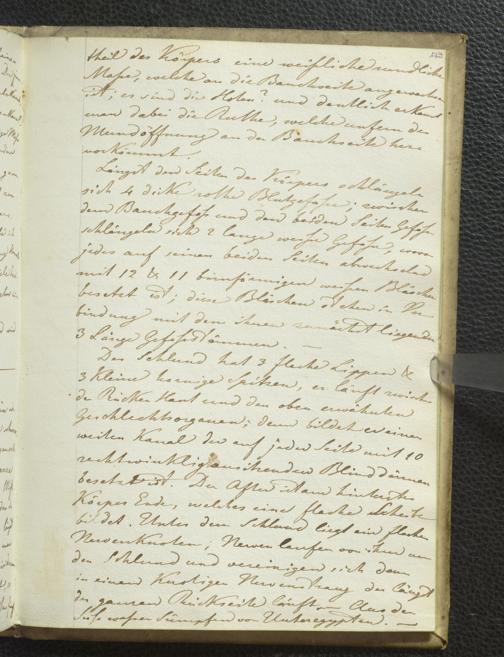 theil des Körpers eine weißliche rundliche
Masse, welche an die Bauchseite angewachsen
ist; es sind die Hoten? und deutlich erkennt
man dabei die Ruthe, welche unfern der
Mundöffnung an der Bauchseite hers
vorkommt.
Längst den Seiten des Körpers schlängeln
sich 4 dicke rothe Blutgefäße; zwischen
dem Bauchgefäß und den beiden Seiten Gefäß
schlängeln sich 2 lange weiße Gefäße, wovon
jedes auf seinen beiden Seiten abwechselnd
mit 12 & 11 birnförmigen weißen Bläschen
besetzt ist; diese Bläschen stehen in Ver-
bindung mit dem ihnen zunächst liegenden
3 Länge Gefäßstämmen. —
Der Schlund hat 3 flache Lippen &
3 kleine hornige Spitzen, er läuft zwischen
der Rücken Haut und den oben erwähnten
Geschlechtsorganen; dann bildet er einen
weiten Kanal der auf jeder Seite mit 10
rechtwinklig ausstehenden Blinddärmen
besetzt ist. Der After ist am hintersten
Körper Ende, welches eine flache Scheibe
bildet. Unter dem Schlund liegt ein flacher
Nervenknoten; Nerven laufen von ihm um
den Schlund und vereinigen sich dann
in einen knotigen Nervenstrang der längst
der ganzen Rückseite läuft. — Aus den
Süßwasser Sümpfen von Unteregypten. —